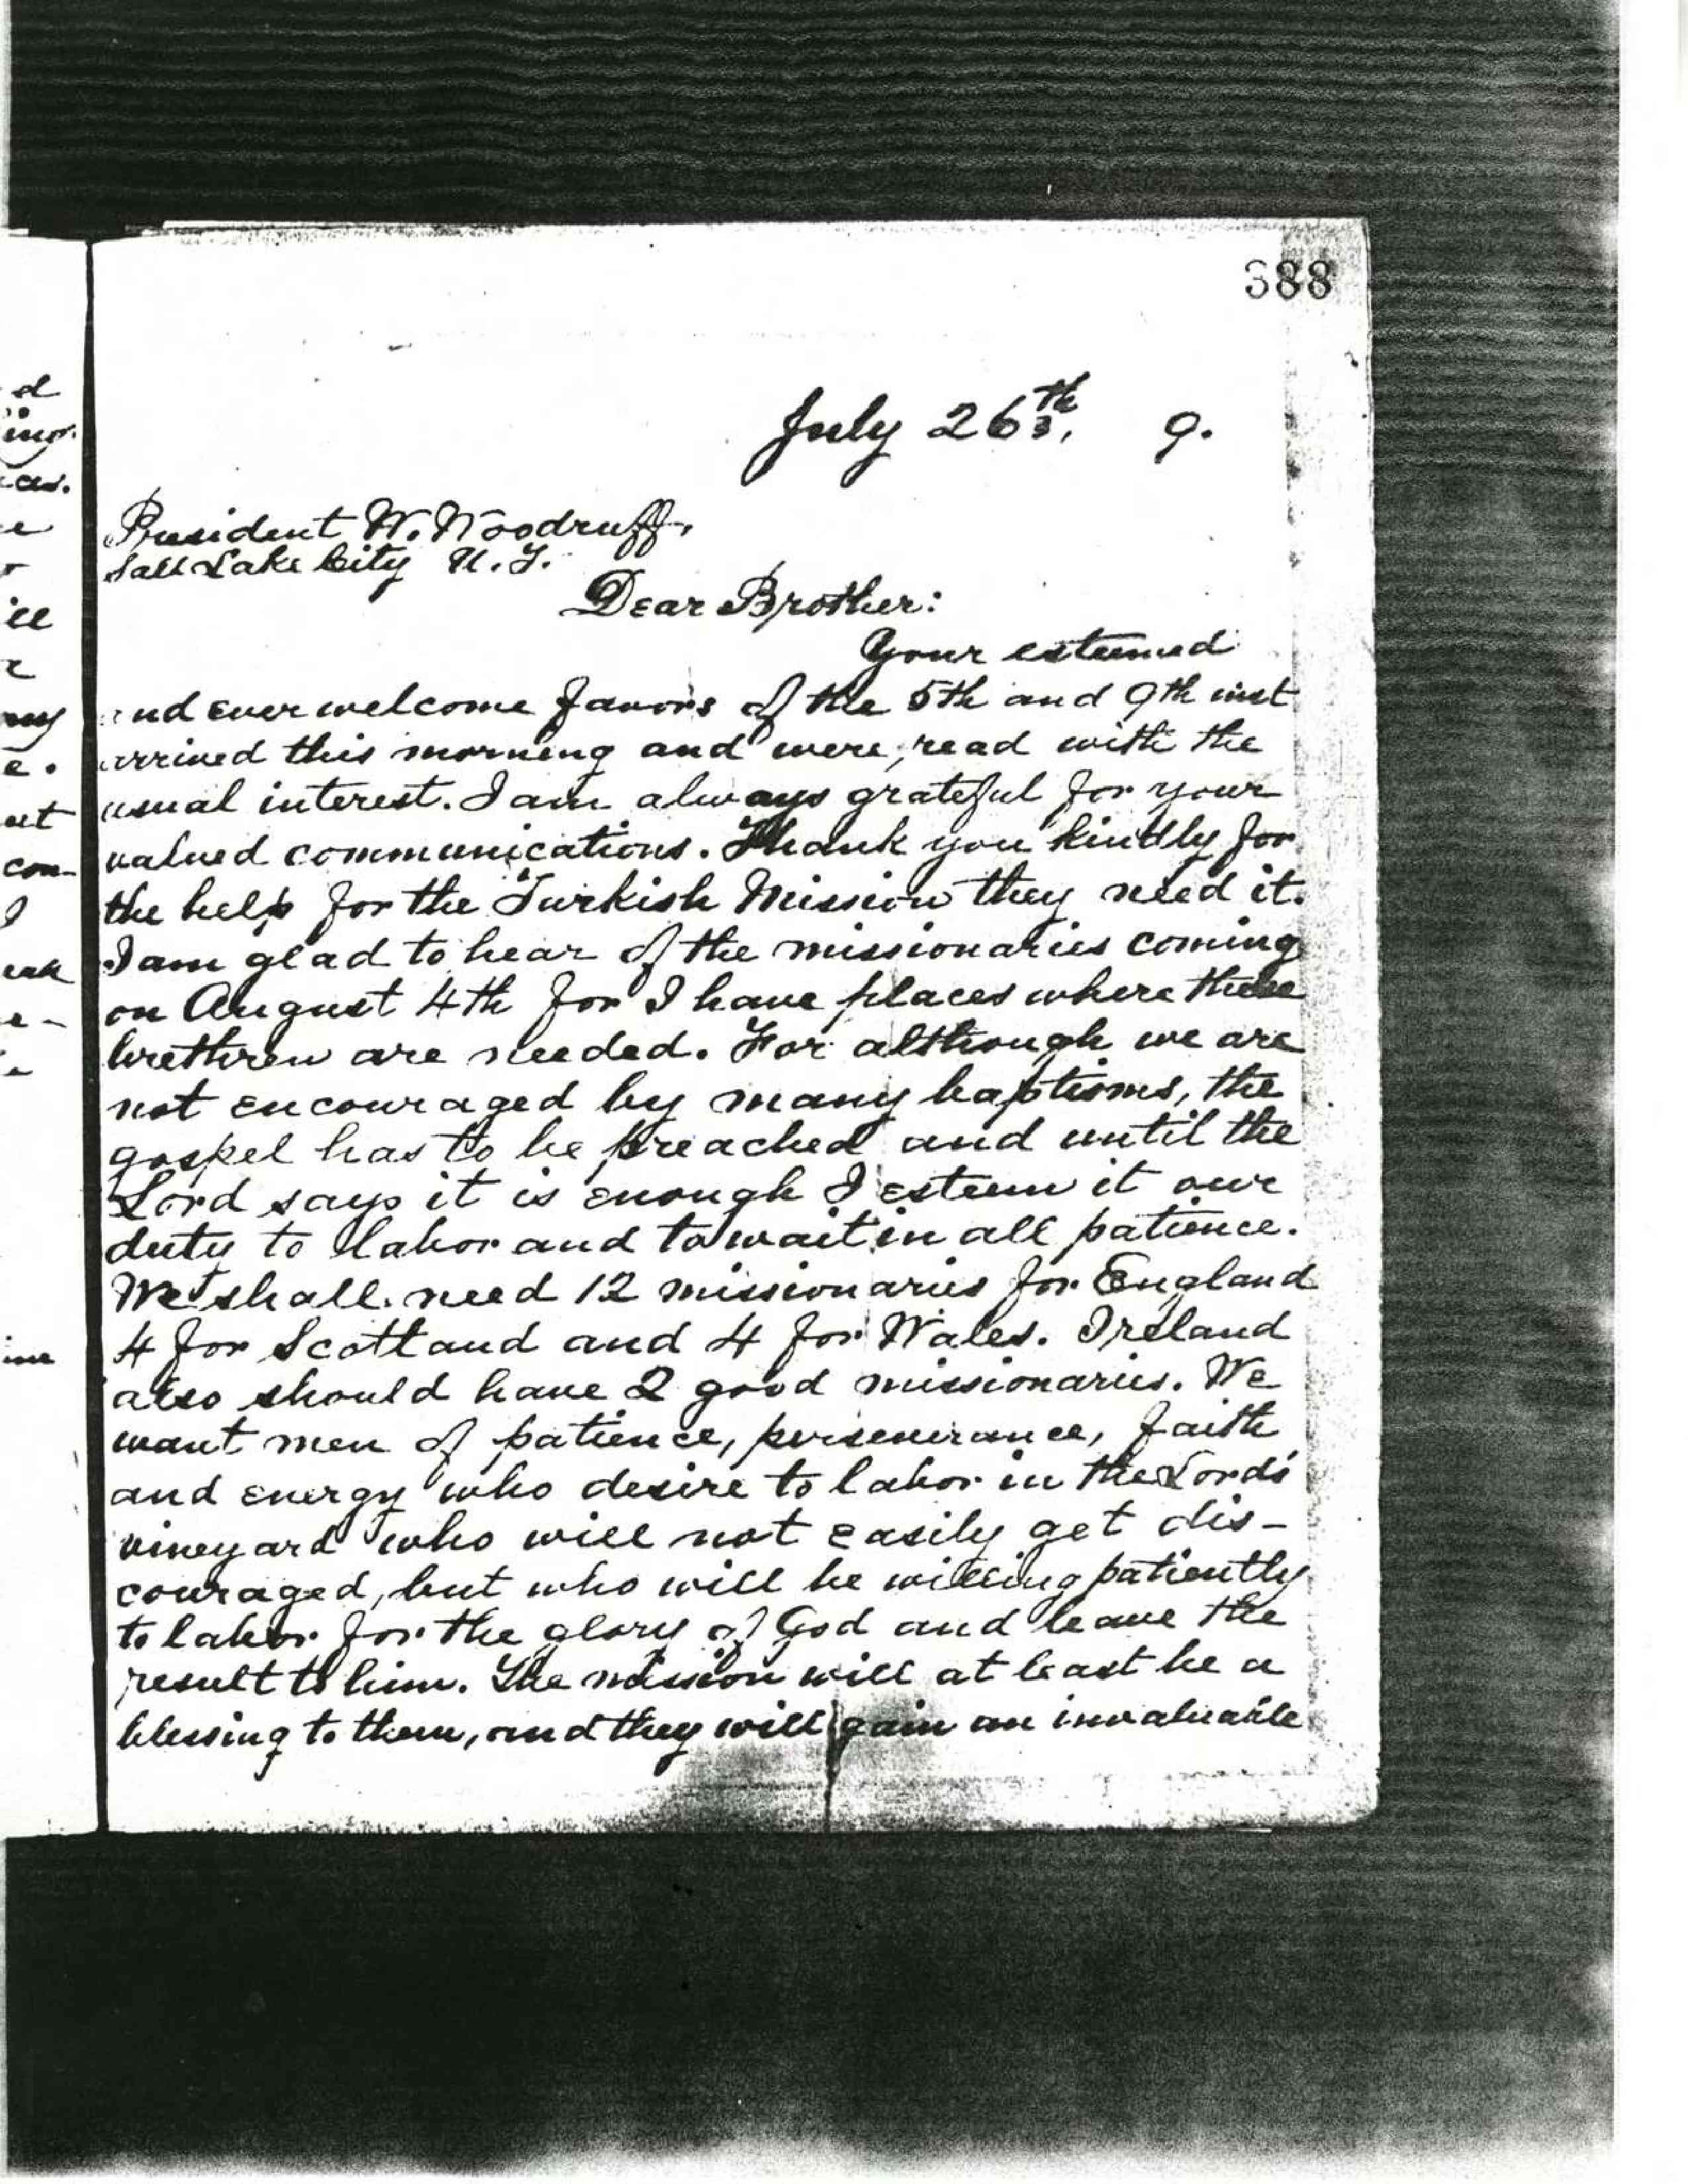 388
July 26th, 9.
President W. Woodruff,
Salt Lake City U. T.
Dear Brother:
Your esteemed
and ever welcome favors of the 5th and 9th inst
arrived this morning and were read with the
usual interest. I am always grateful for your
valued communications. Thank you kindly for
the help for the Turkish Mission they need it.
I am glad to hear of the missionaries coming
on August 4th for I have places where these
brethren are needed. For although we are
not encouraged by many baptisms, the
gospel has to be preached and until the
Lord says it is enough I esteem it our
duty to labor and to wait in all patience.
We shall need 12 missionaries for England
4 for Scotland and 4 for Wales. Ireland
also should have 2 good missionaries. We
want men of patience, perseverance, faith
and energy who desire to labor in the Lord's
vineyard who will not easily get dis-
couraged, but who will be willing patiently
to labor for the glory of God and leave the
result to him. The mission will at least be a
blessing to them, and they will gain an invaluable